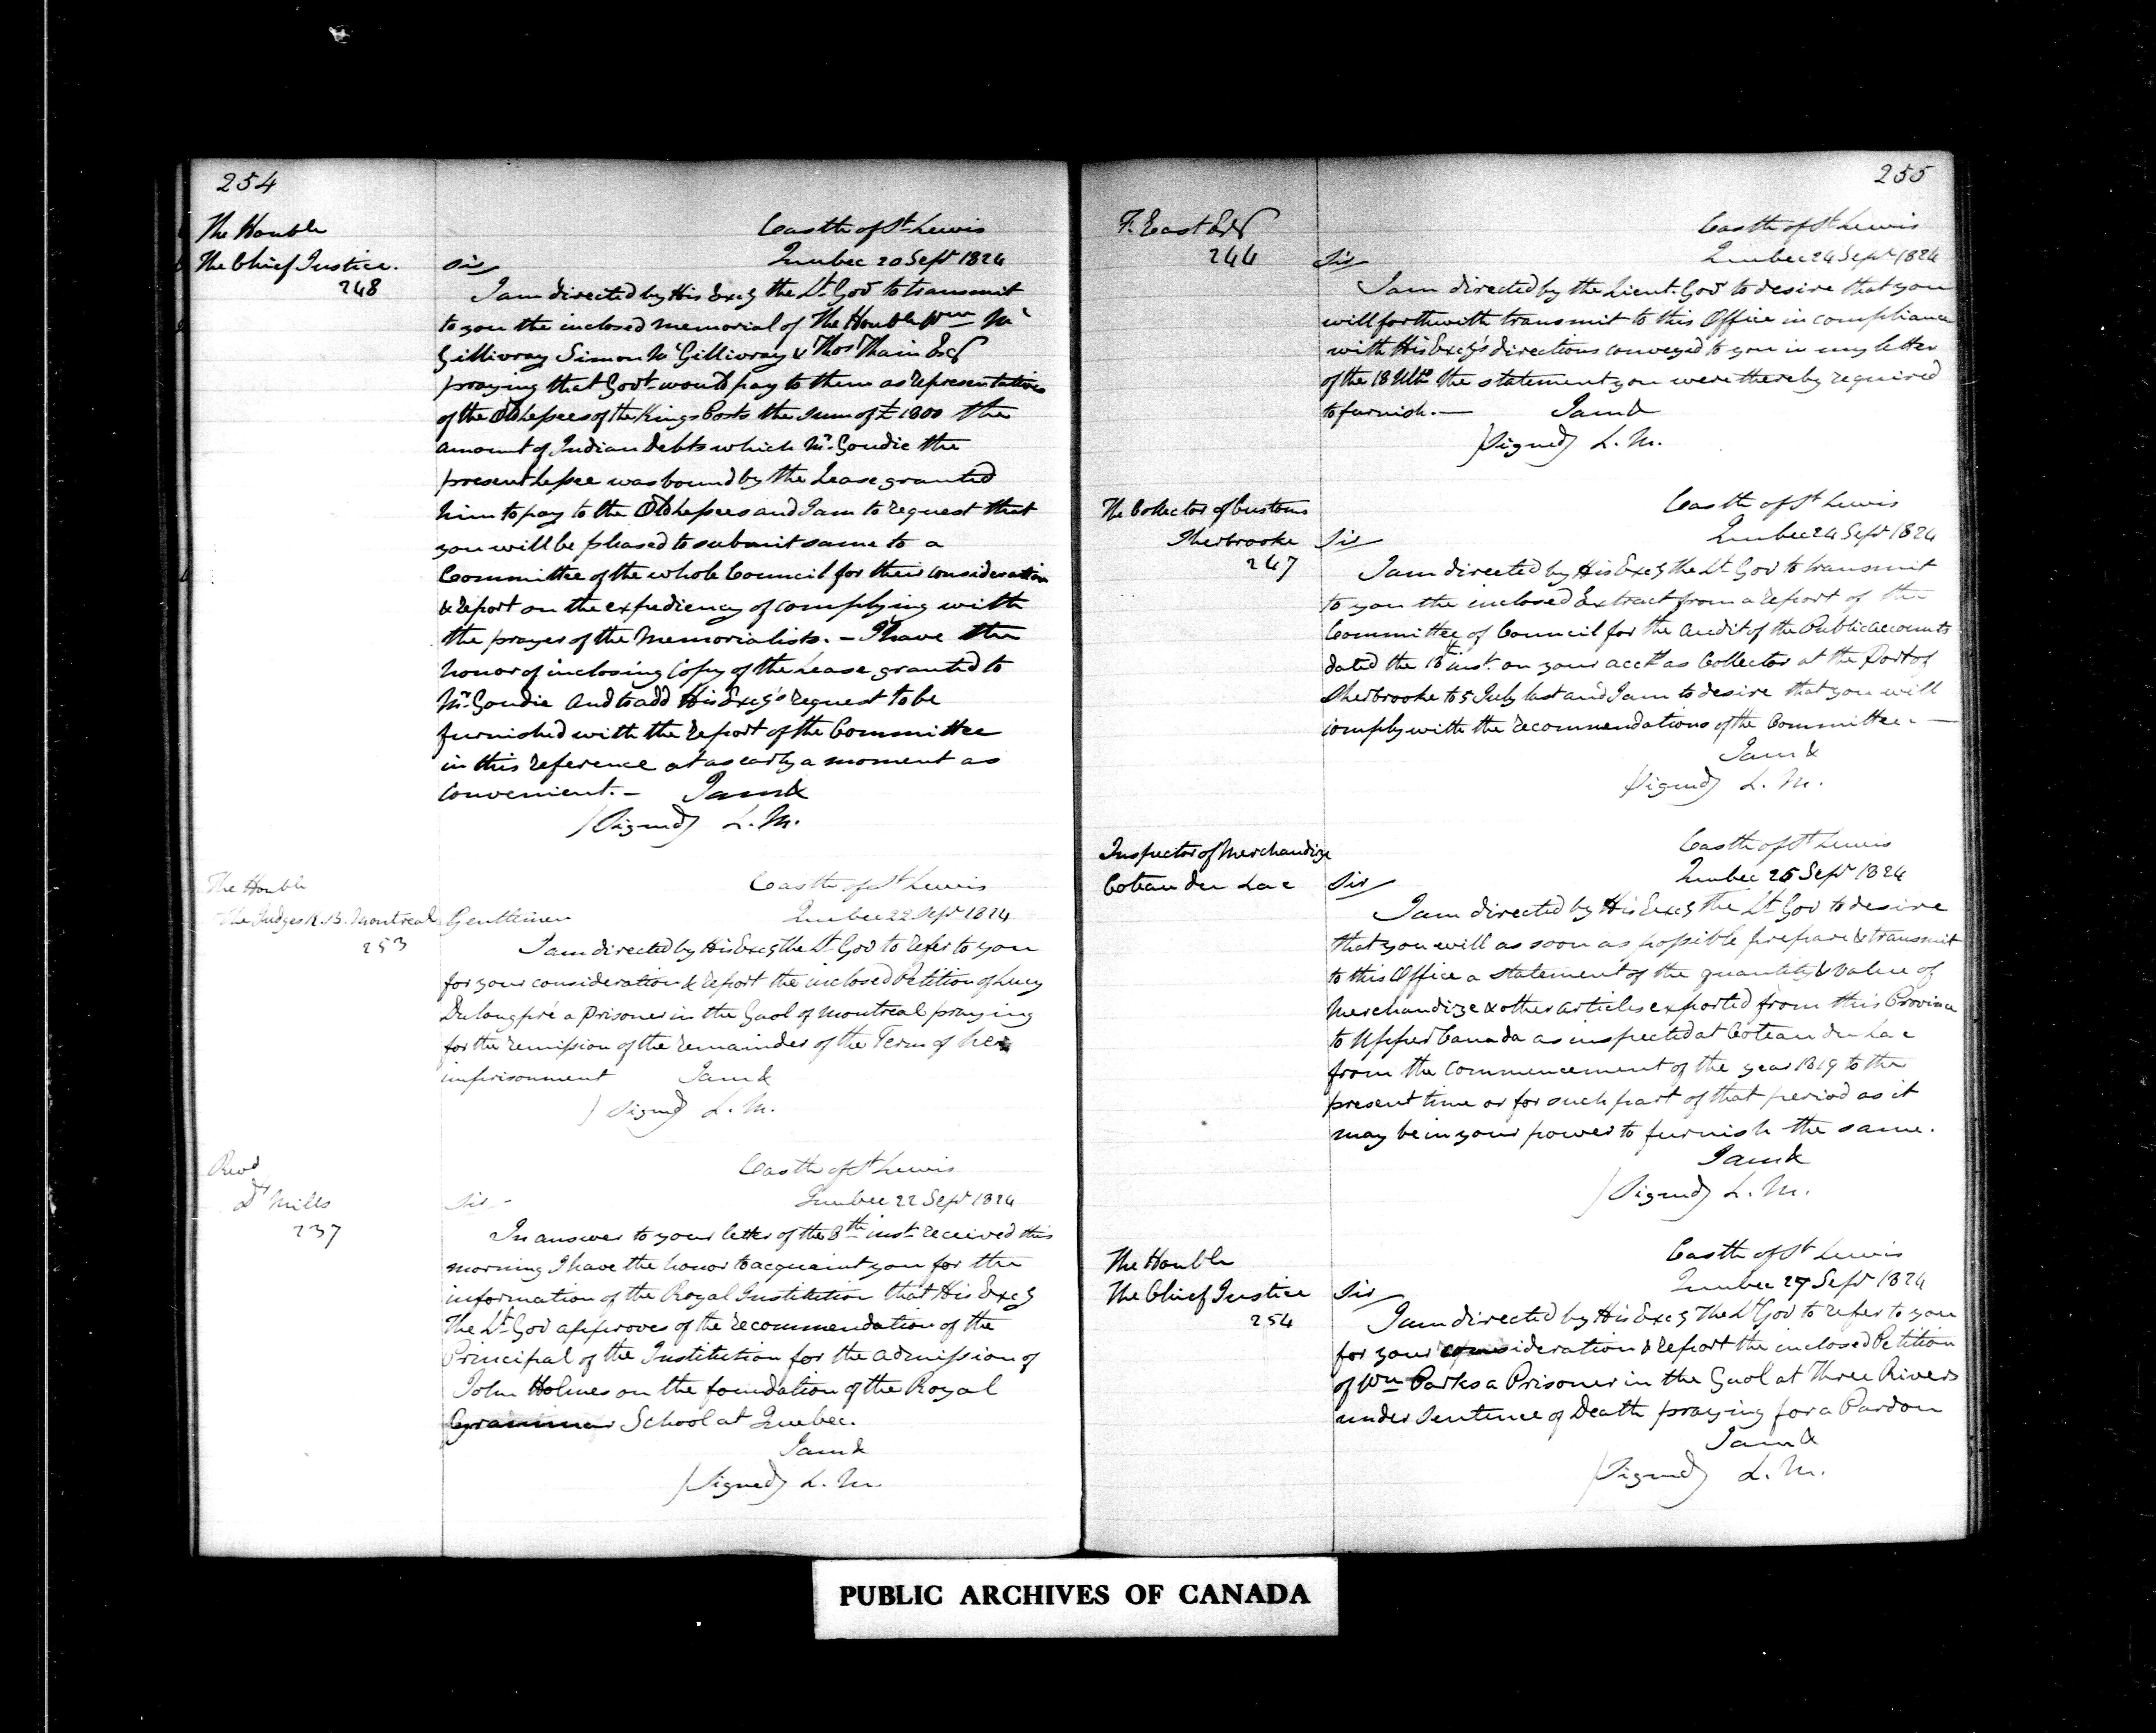 254
The Honble
The Chief Justice.
248
Castle of St Lewis
Quebec 20 Sept 1824
Sir
I am directed by His Excy the Lt Govr to transmit
to you the inclosed memorial of The Honble Wm Mc
Gillivray Simon McGillivray & Thos Thain Esqr
praying that Govt would pay to them as representatives
of the Old Lessees of the Kings Posts the sum of £1800 the
amount of Indian Debts which Mr Goudie the
present Lessee was bound by the Lease granted
him to pay to the Old Lessees and I am to request that
you will be pleased to submit same to a
Committee of the whole Council for their consideration
& report on the expediency of complying with
the prayer of the Memorialists. - I have the
honor of inclosing Copy of the Lease granted to
Mr Goudie and to add His Excy's request to be
furnished with the report of the Committee
in this reference at as early a moment as
convenient. - I am &
(Signed) L. M.
The Honble
The Judges K. B. Montreal
253
Castle of St Lewis
Quebec 22 Sept 1824
Gentlemen
I am directed by His Excy the Lt Govr to refer to you
for your consideration & report the inclosed Petition of Lucy
Dulongpré a Prisoner in the Gaol of Montreal praying
for the remission of the remainder of the Term of her
imprisonment I am &
(Signed) L. M.
Revd
Dr Mills
237
Castle of St Lewis
Quebec 22 Sept 1824
Sir -
In answer to your letter of the 8th inst received this
morning I have the honor to acquaint you for the
information of the Royal Institution that His Excy
The Lt Govr approves of the recommendation of the
Principal of the Institution for the admission of
John Holmes on the foundation of the Royal
Grammar School at Quebec.
I am &
(Signed) L. M.
255
F. East Esqr
244
Castle of St Lewis
Quebec 24 Sept 1824
Sir
I am directed by the Lieut. Govr to desire that you
will forthwith transmit to this Office in compliance
with His Excy's directions conveyed to you in my letter
of the 18 Ulto the statement you were thereby required
to furnish. - I am &
(Signed) L. M.
The Collector of Customs
Sherbrooke
247
Castle of St Lewis
Quebec 24 Sept 1824
Sir
I am directed by His Excy the Lt Govr to transmit
to you the inclosed Extract from a report of the
Committee of Council for the Audit of the Public Accounts
dated the 18th inst. on your acct as Collector at the Port of
Sherbrooke to 5 July last and I am to desire that you will
comply with the recommendations of the Committee. -
I am &
(Signed) L. M.
Inspector of Merchandize
Coteau du Lac
Castle of St Lewis
Quebec 25 Sept 1824
Sir
I am directed by His Excy the Lt Govr to desire
that you will as soon as possible prepare & transmit
to this Office a statement of the quantity & value of
Merchandize & other articles exported from this Province
to Upper Canada as inspected at Coteau du Lac
from the Commencement of the year 1819 to the
present time or for such part of that period as it
may be in your power to furnish the same.
I am &
(Signed) L. M.
The Honble
The Chief Justice
254
Castle of St Lewis
Quebec 27 Sept 1824
Sir
I am directed by His Excy The Lt Govr to refer to you
for your consideration & report the inclosed Petition
of Wm Parks a Prisoner in the Gaol at Three Rivers
under Sentence of Death praying for a Pardon
I am &
(Signed) L. M.
PUBLIC ARCHIVES OF CANADA